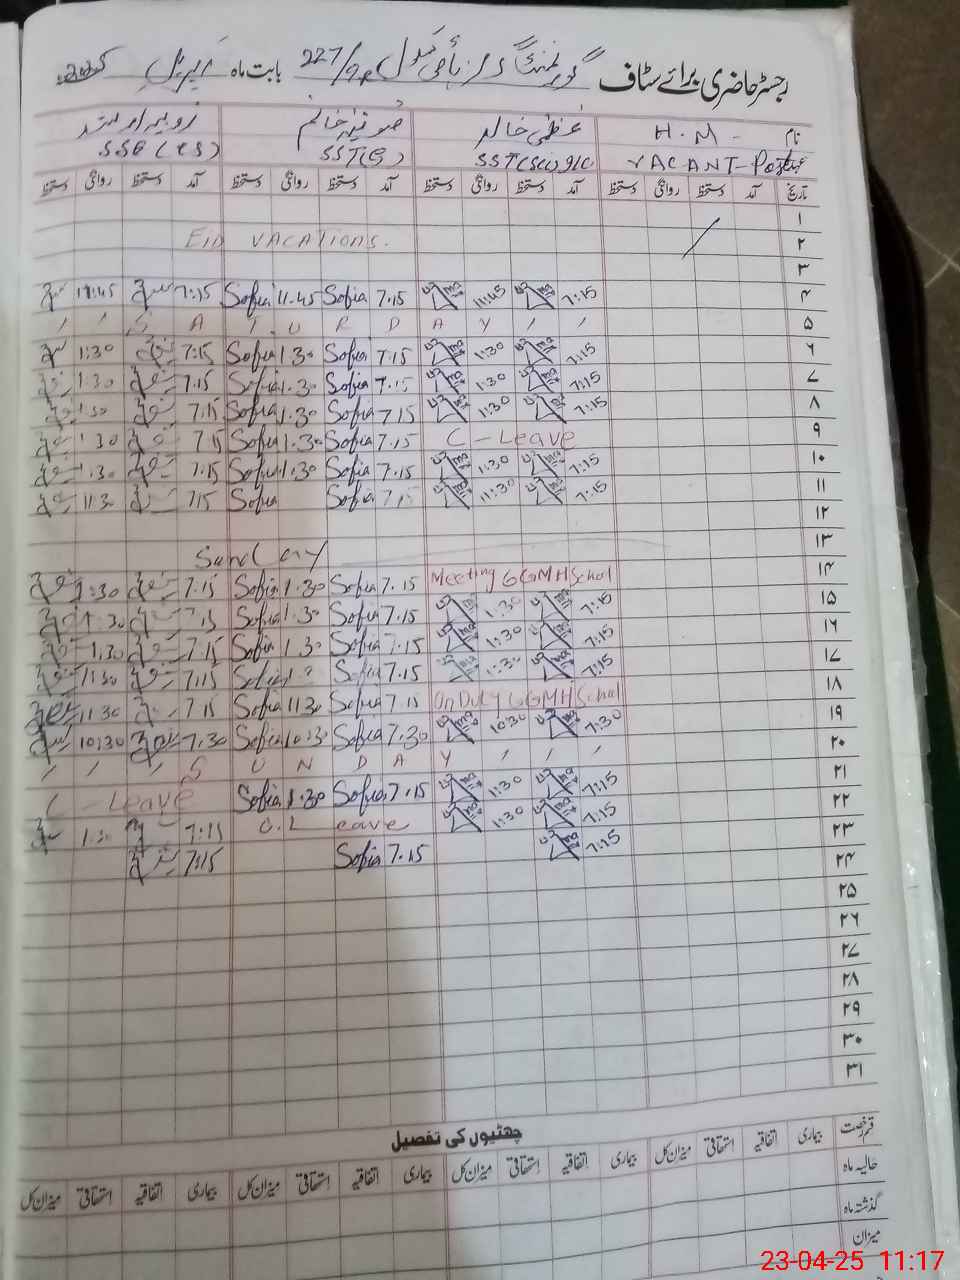 رجسٹر حاضری برائے سٹاف گورنمنٹ گرلز ہائی سکول 227/9R بابت ماہ اپریل 2025
نام H.M - عظمیٰ خالد صوفیہ خانم
عہدہ VACANT-Post SST(Sci) I/C SST(G) SSE(CS)
تاریخ آمد دستخط روانگی دستخط آمد دستخط روانگی دستخط آمد دستخط روانگی دستخط آمد دستخط روانگی دستخط
۱
۲ Eid VACATIONS.
۳
۴ 7:15 11:45 7.15 Sofia 11.45 Sofia 7:15 11:45
۵ S A T U R D A Y
۶ 7:15 1:30 7.15 Sofia 1.30 Sofia 7:15 1:30
۷ 7:15 1:30 7.15 Sofia 1.30 Sofia 7.15 1:30
۸ 7:15 1:30 7.15 Sofia 1.30 Sofia 7.15 1:30
۹ C - Leave 7.15 Sofia 1.30 Sofia 7.15 1:30
۱۰ 7:15 1:30 7.15 Sofia 1.30 Sofia 7.15 1:30
۱۱ 7:15 11:30 7.15 Sofia Sofia 7.15 11:30
۱۲
۱۳ Sunday
۱۴ Meeting GGMH School 7.15 Sofia 1.30 Sofia 7.15 1:30
۱۵ 7:15 1:30 7.15 Sofia 1.30 Sofia 7.15 1:30
۱۶ 7:15 1:30 7.15 Sofia 1.30 Sofia 7.15 1:30
۱۷ 7:15 1:30 7.15 Sofia Sofia 7.15 1:30
۱۸ On Duty GGMH School 7.15 Sofia 11.30 Sofia 7.15 11:30
۱۹ 7:30 10:30 7.30 Sofia 10:30 Sofia 7.30 10:30
۲۰ S U N D A Y
۲۱ 7:15 1:30 7.15 Sofia 1.30 Sofia C - Leave
۲۲ 7:15 1:30 C.Leave 7:15 1:30
۲۳ 7:15 7.15 Sofia 7:15
۲۴
۲۵
۲۶
۲۷
۲۸
۲۹
۳۰
۳۱
چھٹیوں کی تفصیل
قسم رخصت بیماری اتفاقیہ استحقاقی میزان کل بیماری اتفاقیہ استحقاقی میزان کل بیماری اتفاقیہ استحقاقی میزان کل بیماری اتفاقیہ استحقاقی میزان کل
حالیہ ماہ
گذشتہ ماہ
میزان
23-04-25 11:17